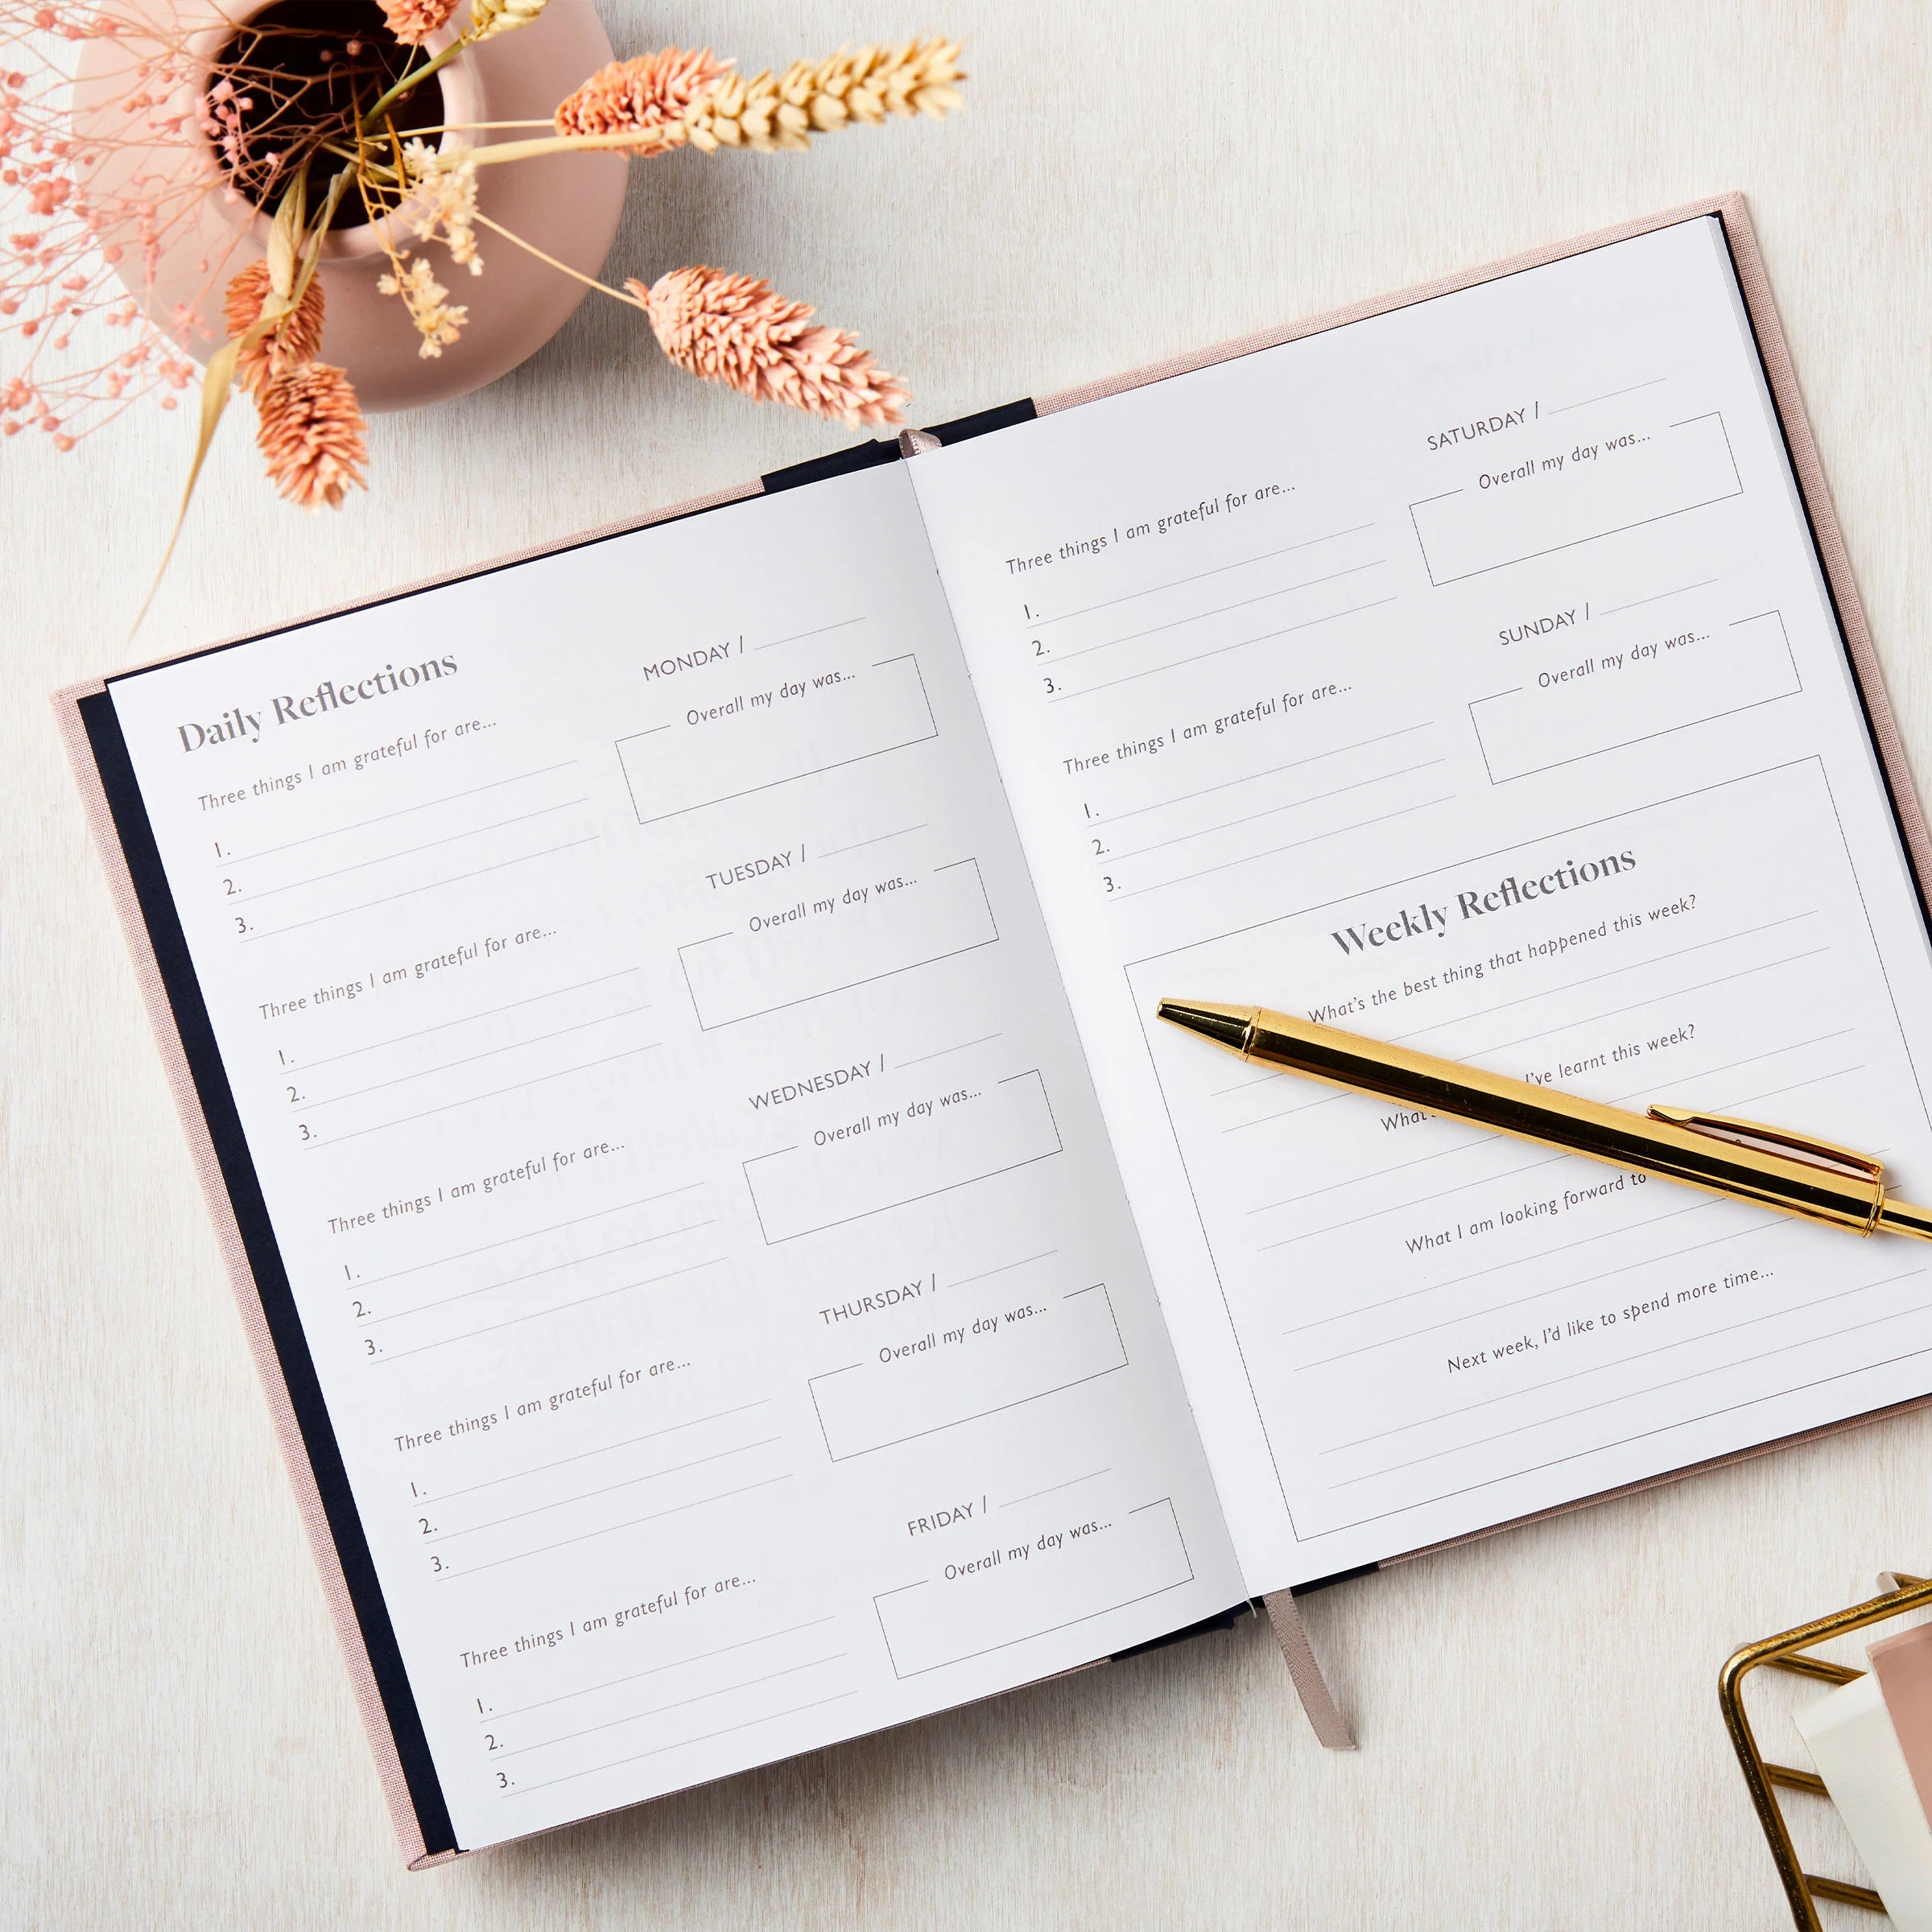 Daily Reflections
MONDAY /
Three things I am grateful for are...
Overall my day was...
1.
2.
3.
TUESDAY /
Three things I am grateful for are...
Overall my day was...
1.
2.
3.
WEDNESDAY /
Three things I am grateful for are...
Overall my day was...
1.
2.
3.
THURSDAY /
Three things I am grateful for are...
Overall my day was...
1.
2.
3.
FRIDAY /
Three things I am grateful for are...
Overall my day was...
1.
2.
3.
SATURDAY /
Three things I am grateful for are...
Overall my day was...
1.
2.
3.
SUNDAY /
Three things I am grateful for are...
Overall my day was...
1.
2.
3.
Weekly Reflections
What's the best thing that happened this week?
What I've learnt this week?
What I am looking forward to
Next week, I'd like to spend more time...